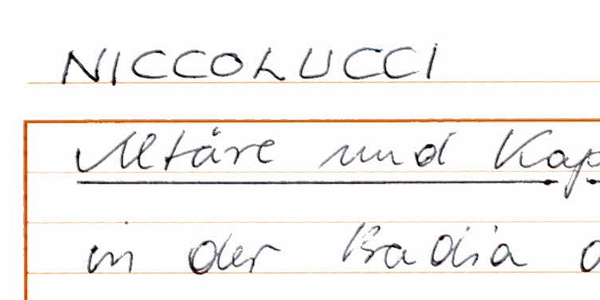 NICCOLUCCI
Altäre und Kap
in der Badia d